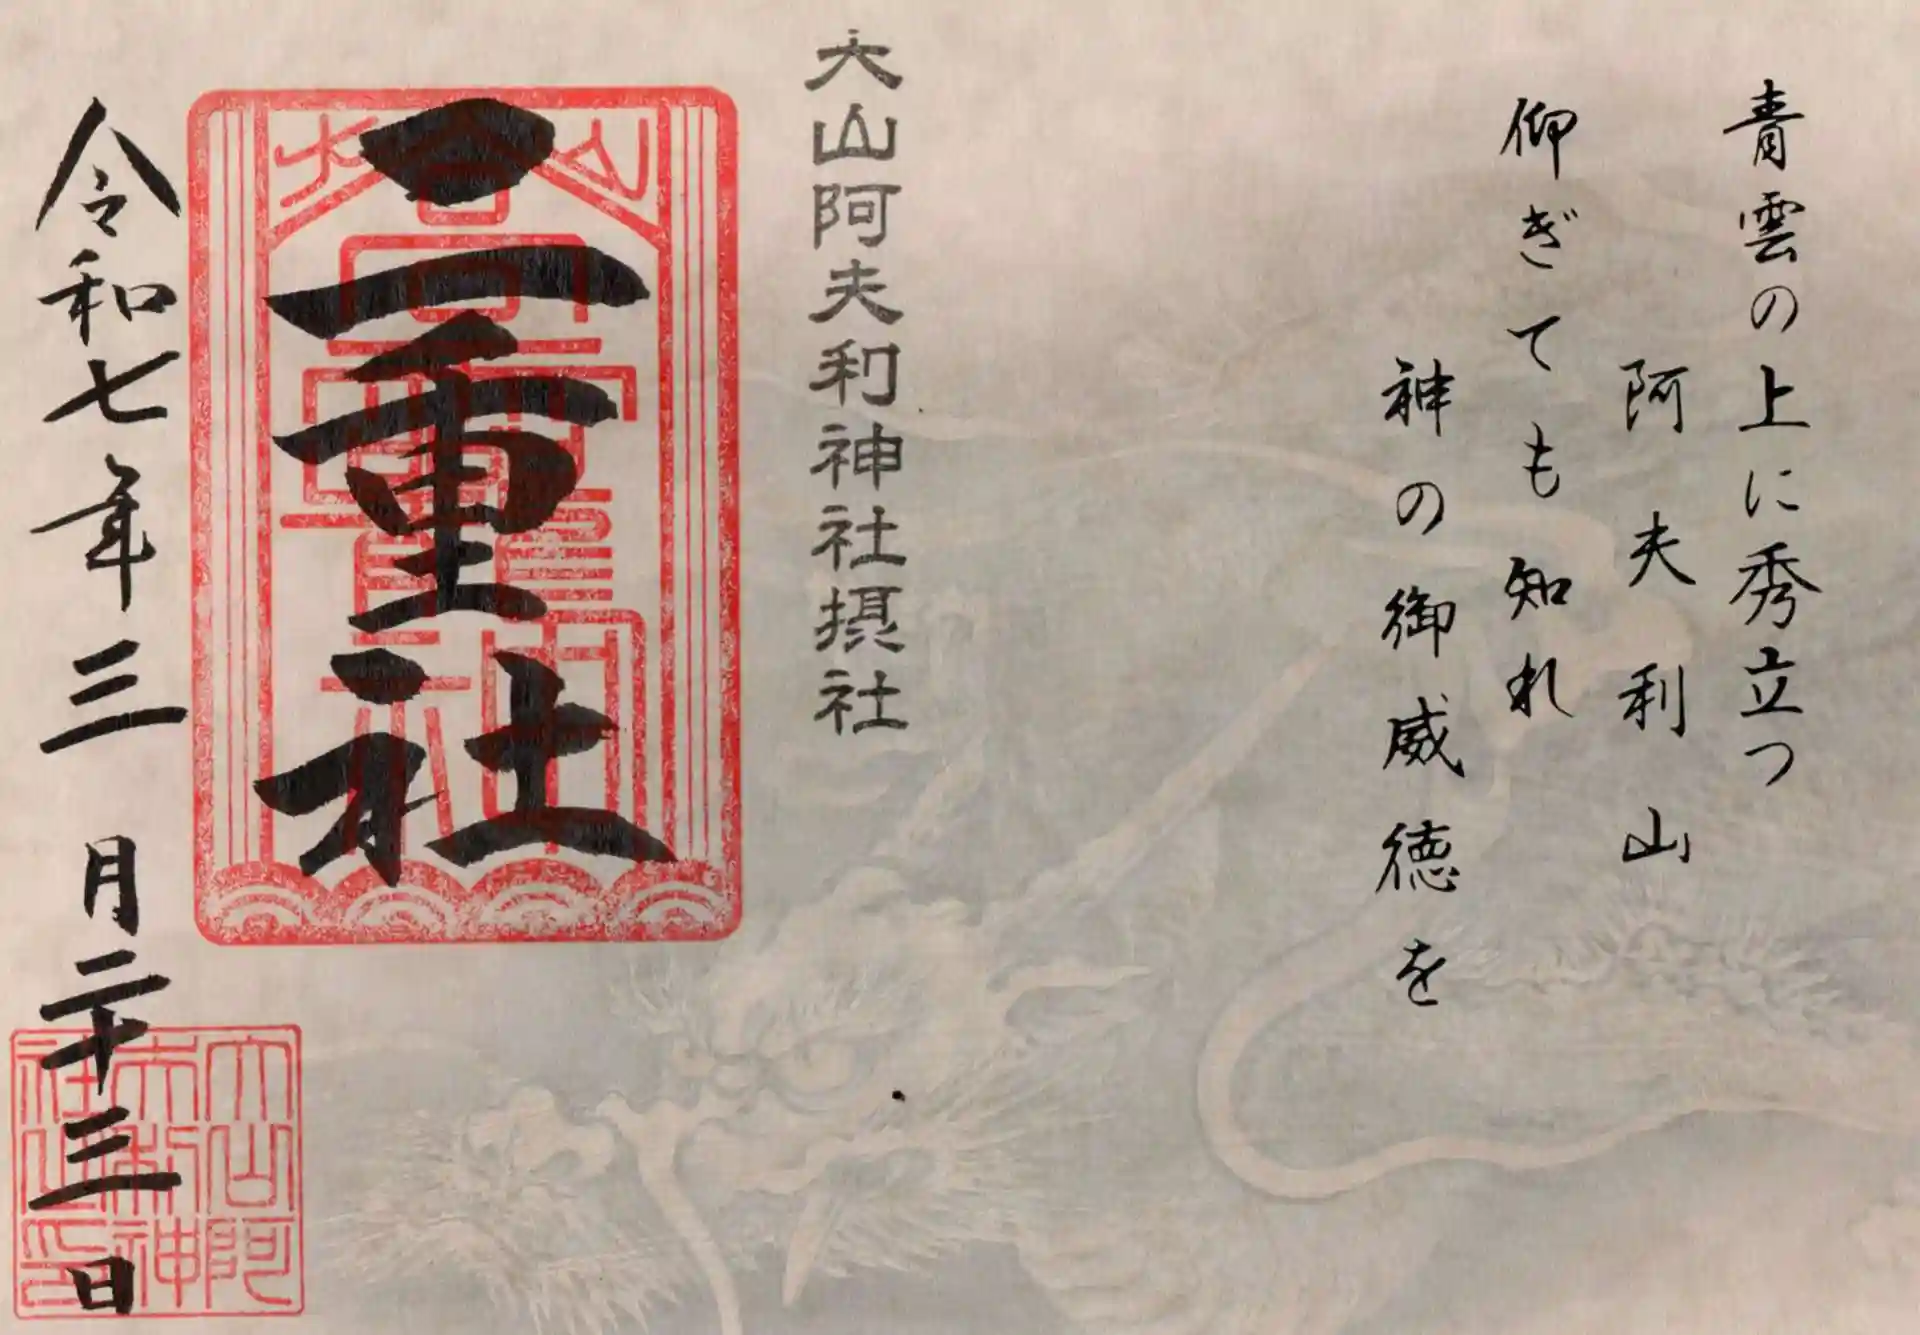 青雲の上に秀立つ
阿夫利山
仰ぎても知れ
神の御威徳を
大山阿夫利神社摂社
二重社
令和七年三月二十三日
大山阿
夫利神
社之印